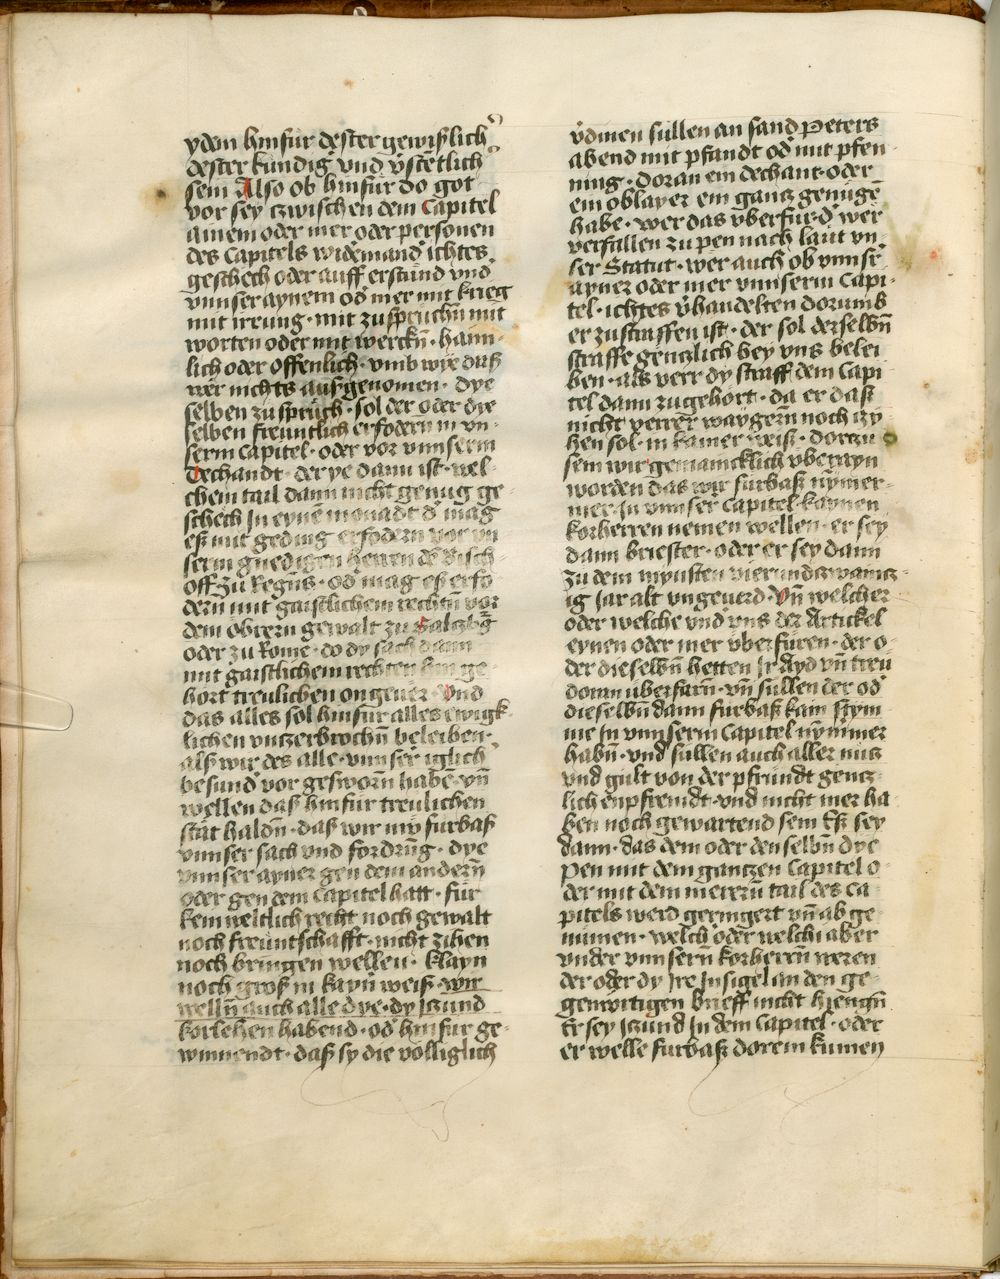 ydem hinfür dester gewißlich
dester kundig vnd v̓stetlich
sein Also ob hinfür do got
vor sey czwischen dem Capitel
ainem oder mer oder personen
des Capitels widemand ichtes
geschech oder auff erstund vnd
vnnser aynem od̓ mer mit krieg
mit irrung · mit zusprüchn̄ mit
worten oder mit werckn̄ · haim-
lich oder offenlich · vmb wye daß
wer nichts außgenomen · dye
selben zusprüch · sol der oder dye
selben freuntlich erfodern in vn-
serm Capitel · oder vor vnnserm
Techandt · der ye dann ist · wel-
chem tail dann nicht genug ge-
schech In eynē monadt d̓ mag
eß mit geding erfodern vor vn
serm gnedigen herren dē Bisch-
off zu Regns · od̓ mag eß erfo
dern mit gaistlichem rechtn̄ vor
dem obrern gewalt zu Salczb̓g
oder zu Rome · do dy sach dann
mit gaistlichem rechten hin ge-
hort treulichen on geuer · Vnd
das alles sol hinfür alles ewigk-
lichen vntzerbrochn̄ beleiben ·
alß wir des alle · vnnser iglich
besund̓ vor gesworn̄ habe · vn̄
wellen daß hinfür treulichen
stät haldn̄ · daß wir nỳ furbaß
vnnser sach vnd fordrūg · dye
vnnser ayner gen dem andern̄
oder gen dem Capitel hatt · für
kein weltlich recht noch gewalt
noch freuntschafft · nicht zihen
noch bringen wellen · klayn
noch groß in kayn̄ weiß · wir
welln̄ auch alle dye · dy Iczund
korlehen habend · od̓ hinfur ge-
winnendt · daß sy die volliglich
v̓dinen sullen an sand Peters
abend mit pfandt od̓ mit pfen-
ning · doran ein dechant · oder
ein oblayer ein gancz genüge
habe · wer das vberfür d̓ wer
verfallen zu pen nach laut vn-
ser Statut · wer auch ob vnnsr̓
ayner oder mer vnnserm Capi-
tel · ichtes v̓handelten dorumb
er zustraffen ist · der sol derselbn̄
straffe genczlich bey vns belei
ben · als verr dy straff dem Capi
tel dann zugehort · da er daß
nicht verrer waygern̄ noch czy-
hen sol · in kainer weiß · dorczu
sein wir gemaincklich vberayn
worden das wir fürbaß nỳmer-
mer In vnnser Capitel kaynen
korherren nemen wellen · er sey
dann briester · oder er sey dann
zu dem mynsten vierundczwaincz-
ig Iar alt vngeuerd · Vn̄ welcher
oder welche vnd vns der Artickel
eynen oder mer vberfüren · der o-
der dieselbn̄ hetten Ir Ayd vn̄ treu
doran uberfarn̄ · vn̄ sullen der od̓
dieselbn̄ dann furbaß kain stym-
me In vnnserm Capitel nỳmmer
habn̄ · vnd sullen auch aller nucz
vnd gult von der pfrundt gencz-
lich enpfremdt · vnd nicht mer ha-
ben noch gewartend sein Eß sey
dann · das dem oder den selbn̄ dye
Pen mit dem gantzen Capitel o-
der mit dem merern̄ tail des Ca-
pitels werd geringert vn̄ ab ge-
numen · welch oder welchi aber
vnder vnnsern̄ korherrn̄ weren
der oder dy Ire Insigel an den ge-
genwrtigen brieff nicht hiengn̄
Er sey Iczund In dem Capitel · oder
er welle furbaß dorein kumen